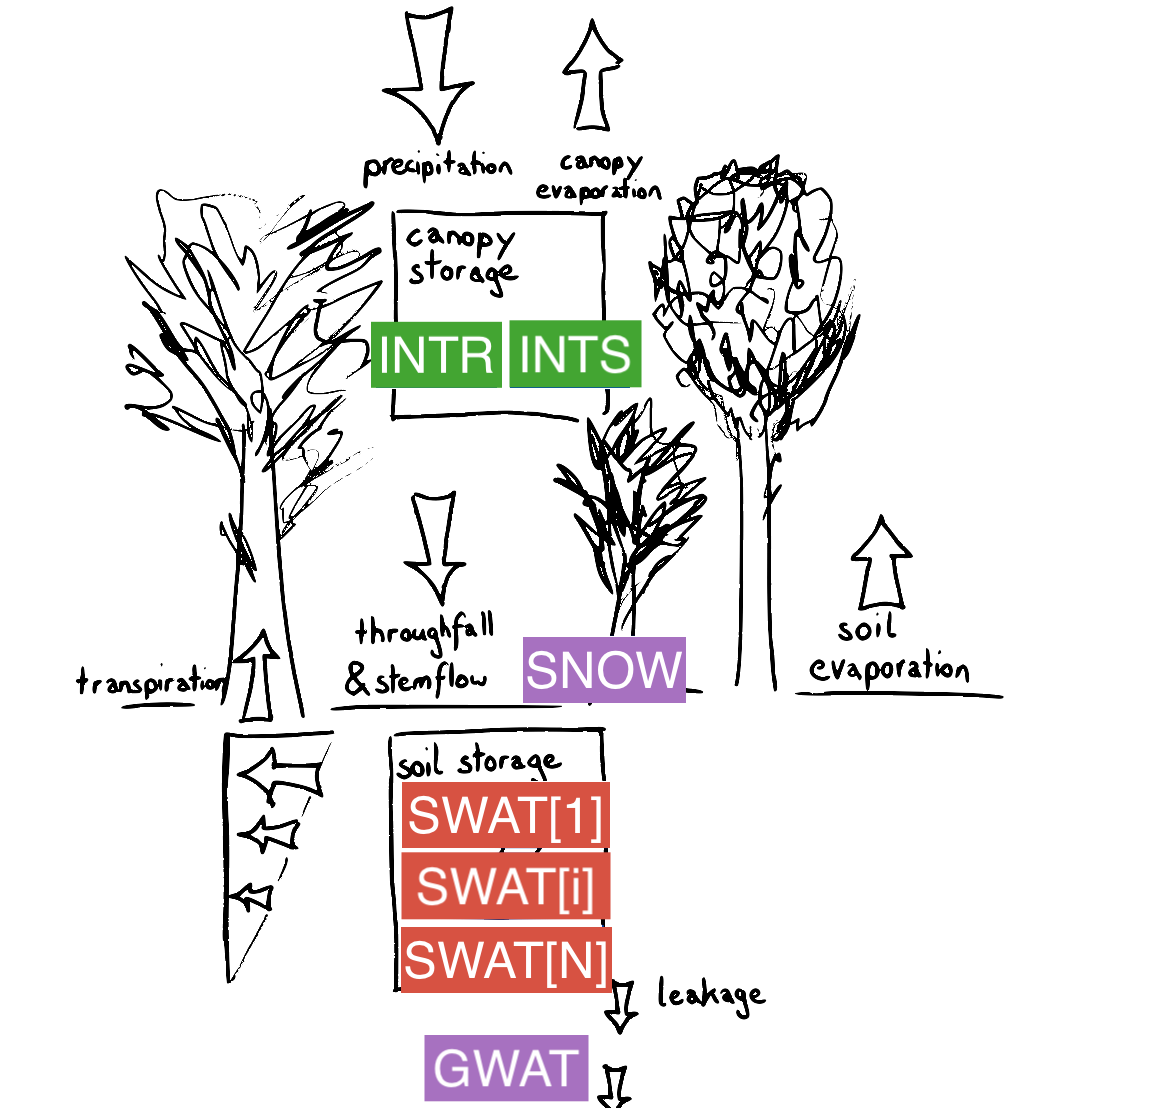 precipitation
canopy
evaporation
canopy
storage
INTR INTS
throughfall
& stemflow
SNOW
soil
evaporation
transpiration
soil storage
SWAT[1]
SWAT[i]
SWAT[N]
leakage
GWAT